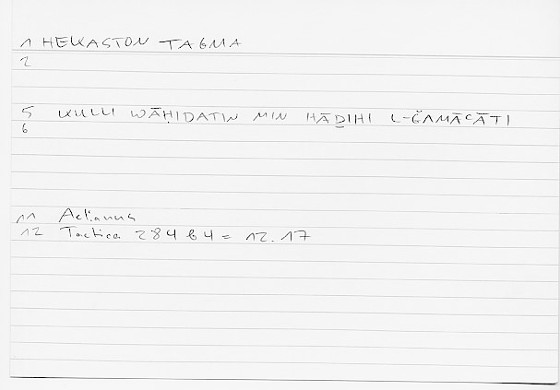 1 HEKASTON TAGMA
2
5 KULLI WĀḤIDATIN MIN HĀḎIHI L-ǦAMĀʿĀTI
6
11 Aelianus
12 Tactica 284 b4 = 12.17